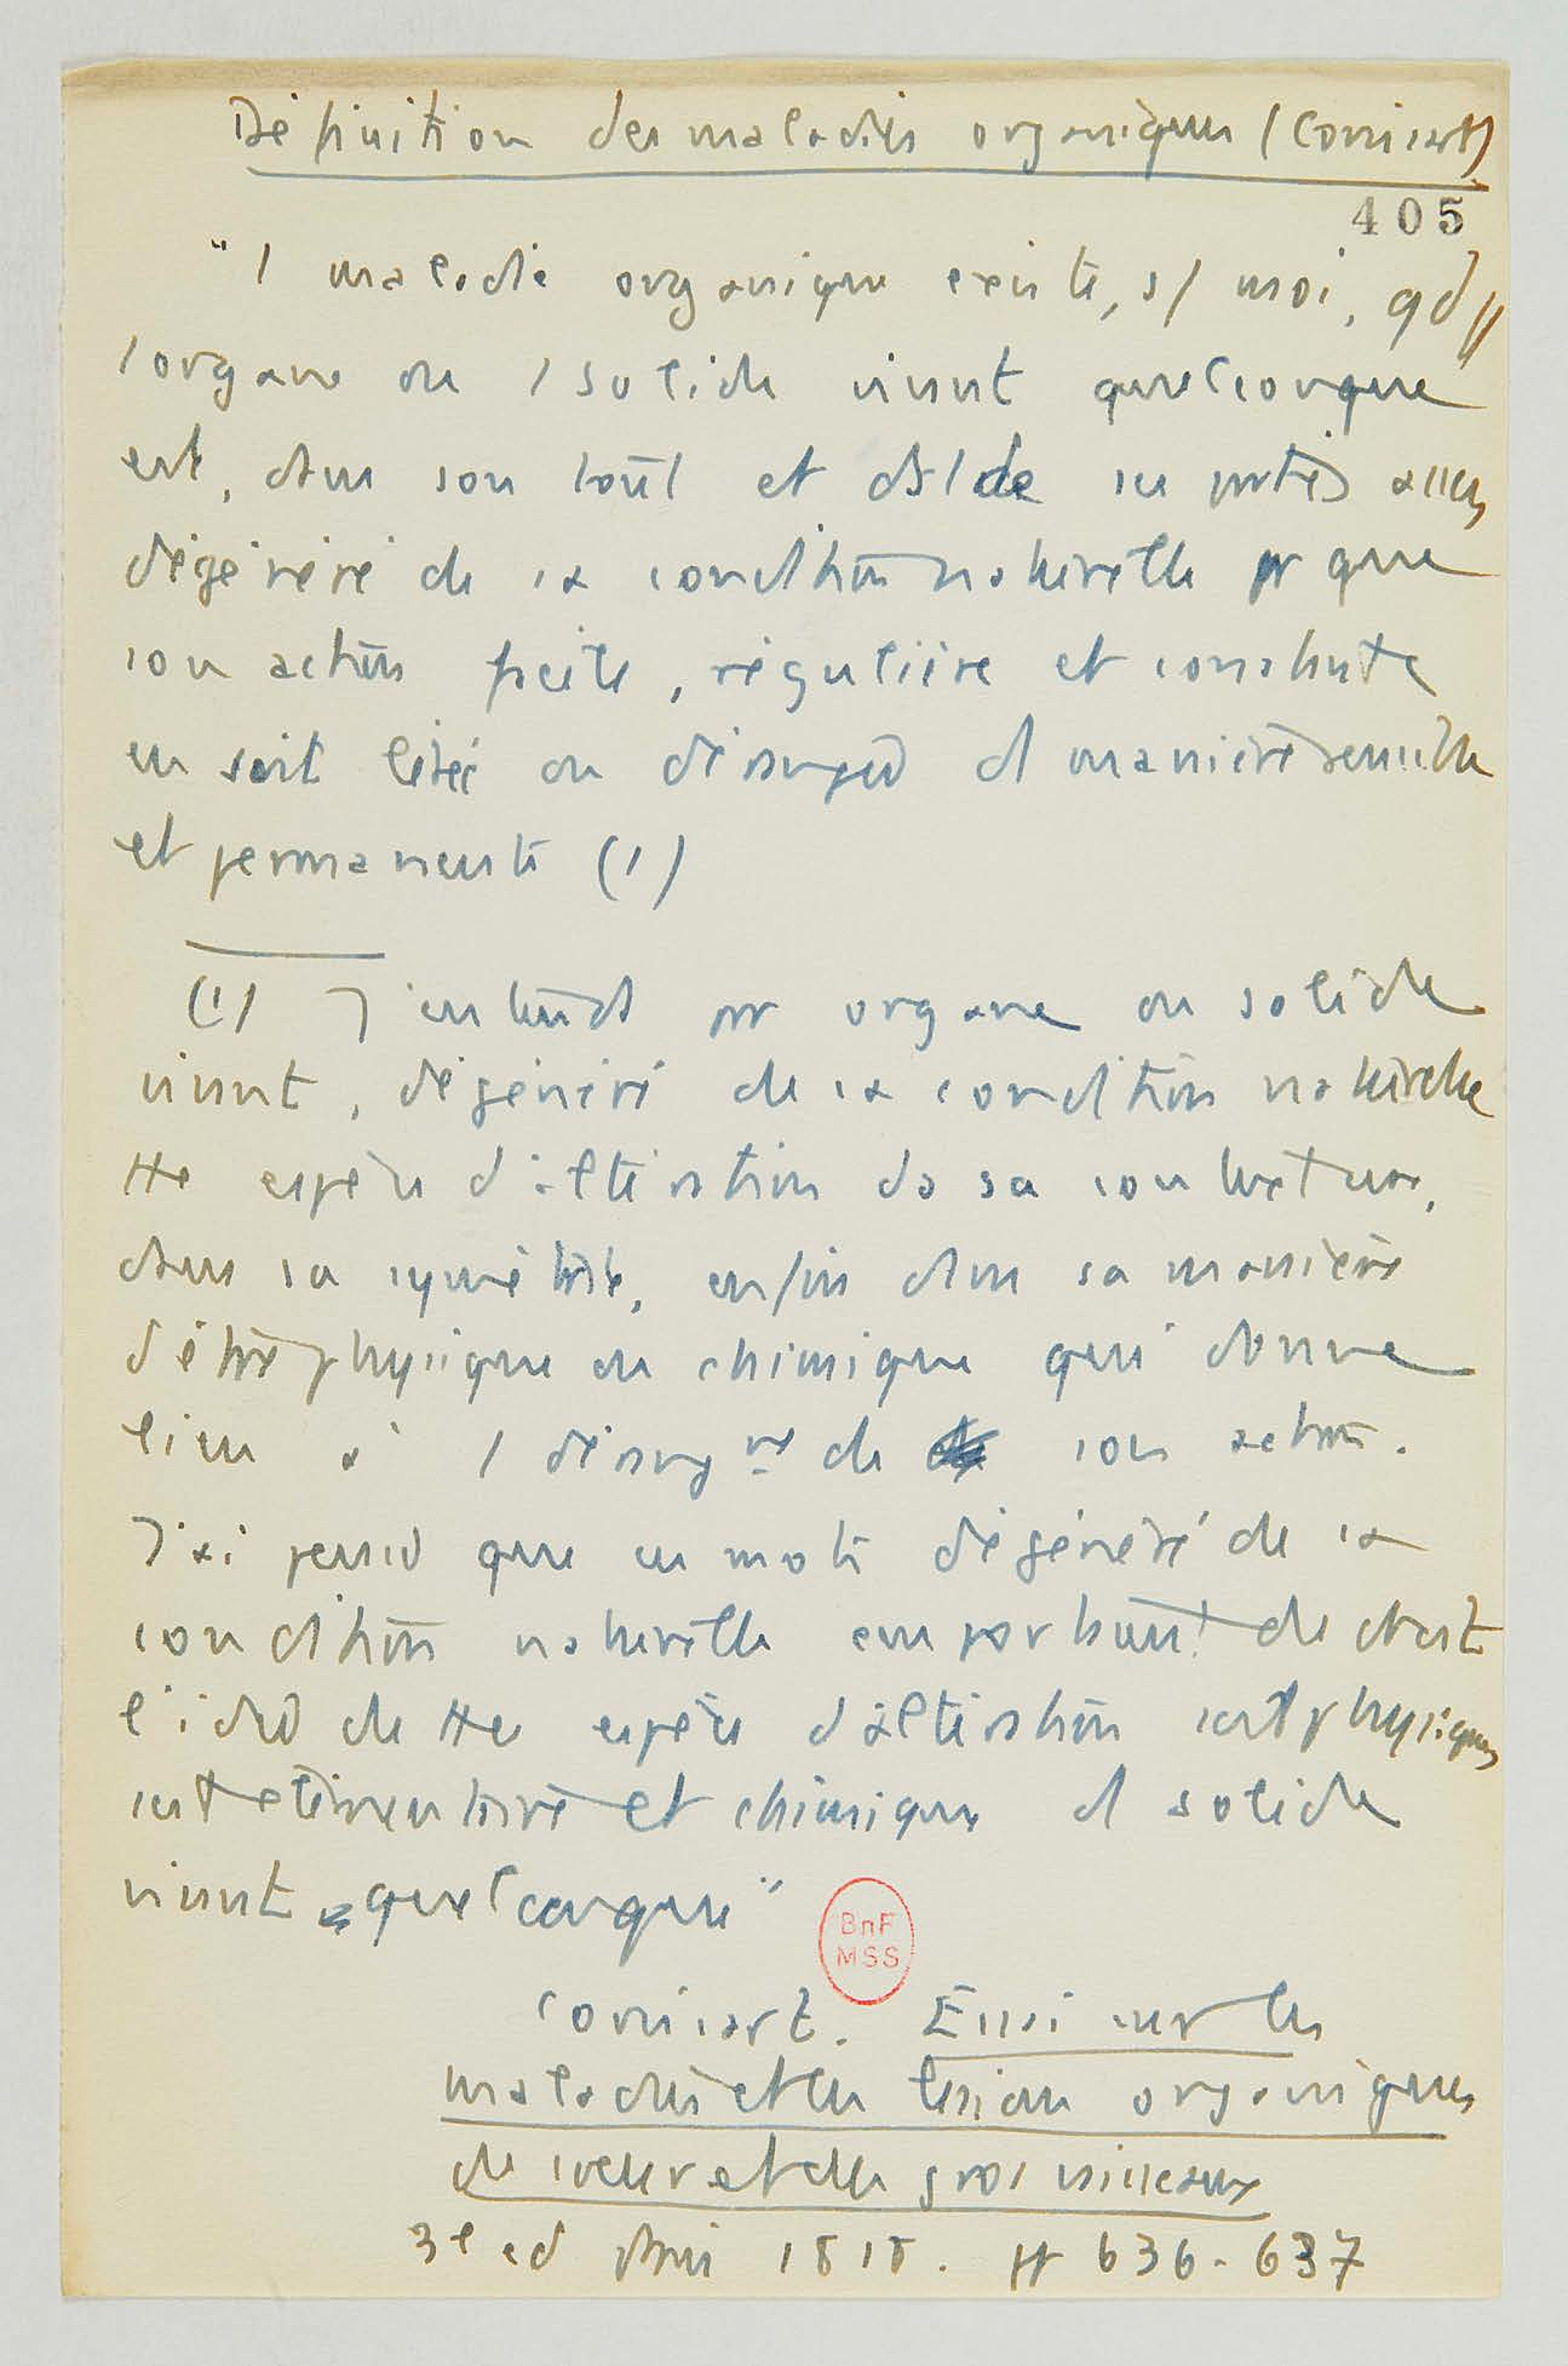 Définition des maladies organiques (Corvisart)
405
"1 maladie organique existe, s/ moi, qd
1 organe ou 1 solide vivant quelconque
est, dans son tout et ds 1 de ses parties assez
dégénéré de sa condition naturelle pr que
son action facile, régulière et constante
en soit lésée ou dérangée d manière sensible
et permanente (1)
(1) J'entends par organe ou solide
vivant, dégénéré de sa condition naturelle
tte espèce d'altération ds sa contexture,
dans sa symétrie, enfin dans sa manière
d'être physique ou chimique qui donne
lieu à 1 dérangnt de son action.
J'ai pensé que ces mots dégénéré de sa
condition naturelle emportaient de droit
l'idée de tte espèce d'altération soit physique
soit élémentaire et chimique d solide
vivant quelconque"
Corvisart. Essai sur les
maladies et les lésions organiques
du coeur et des gros vaisseaux
3e ed Paris 1818. pp 636-637
BnF
MSS